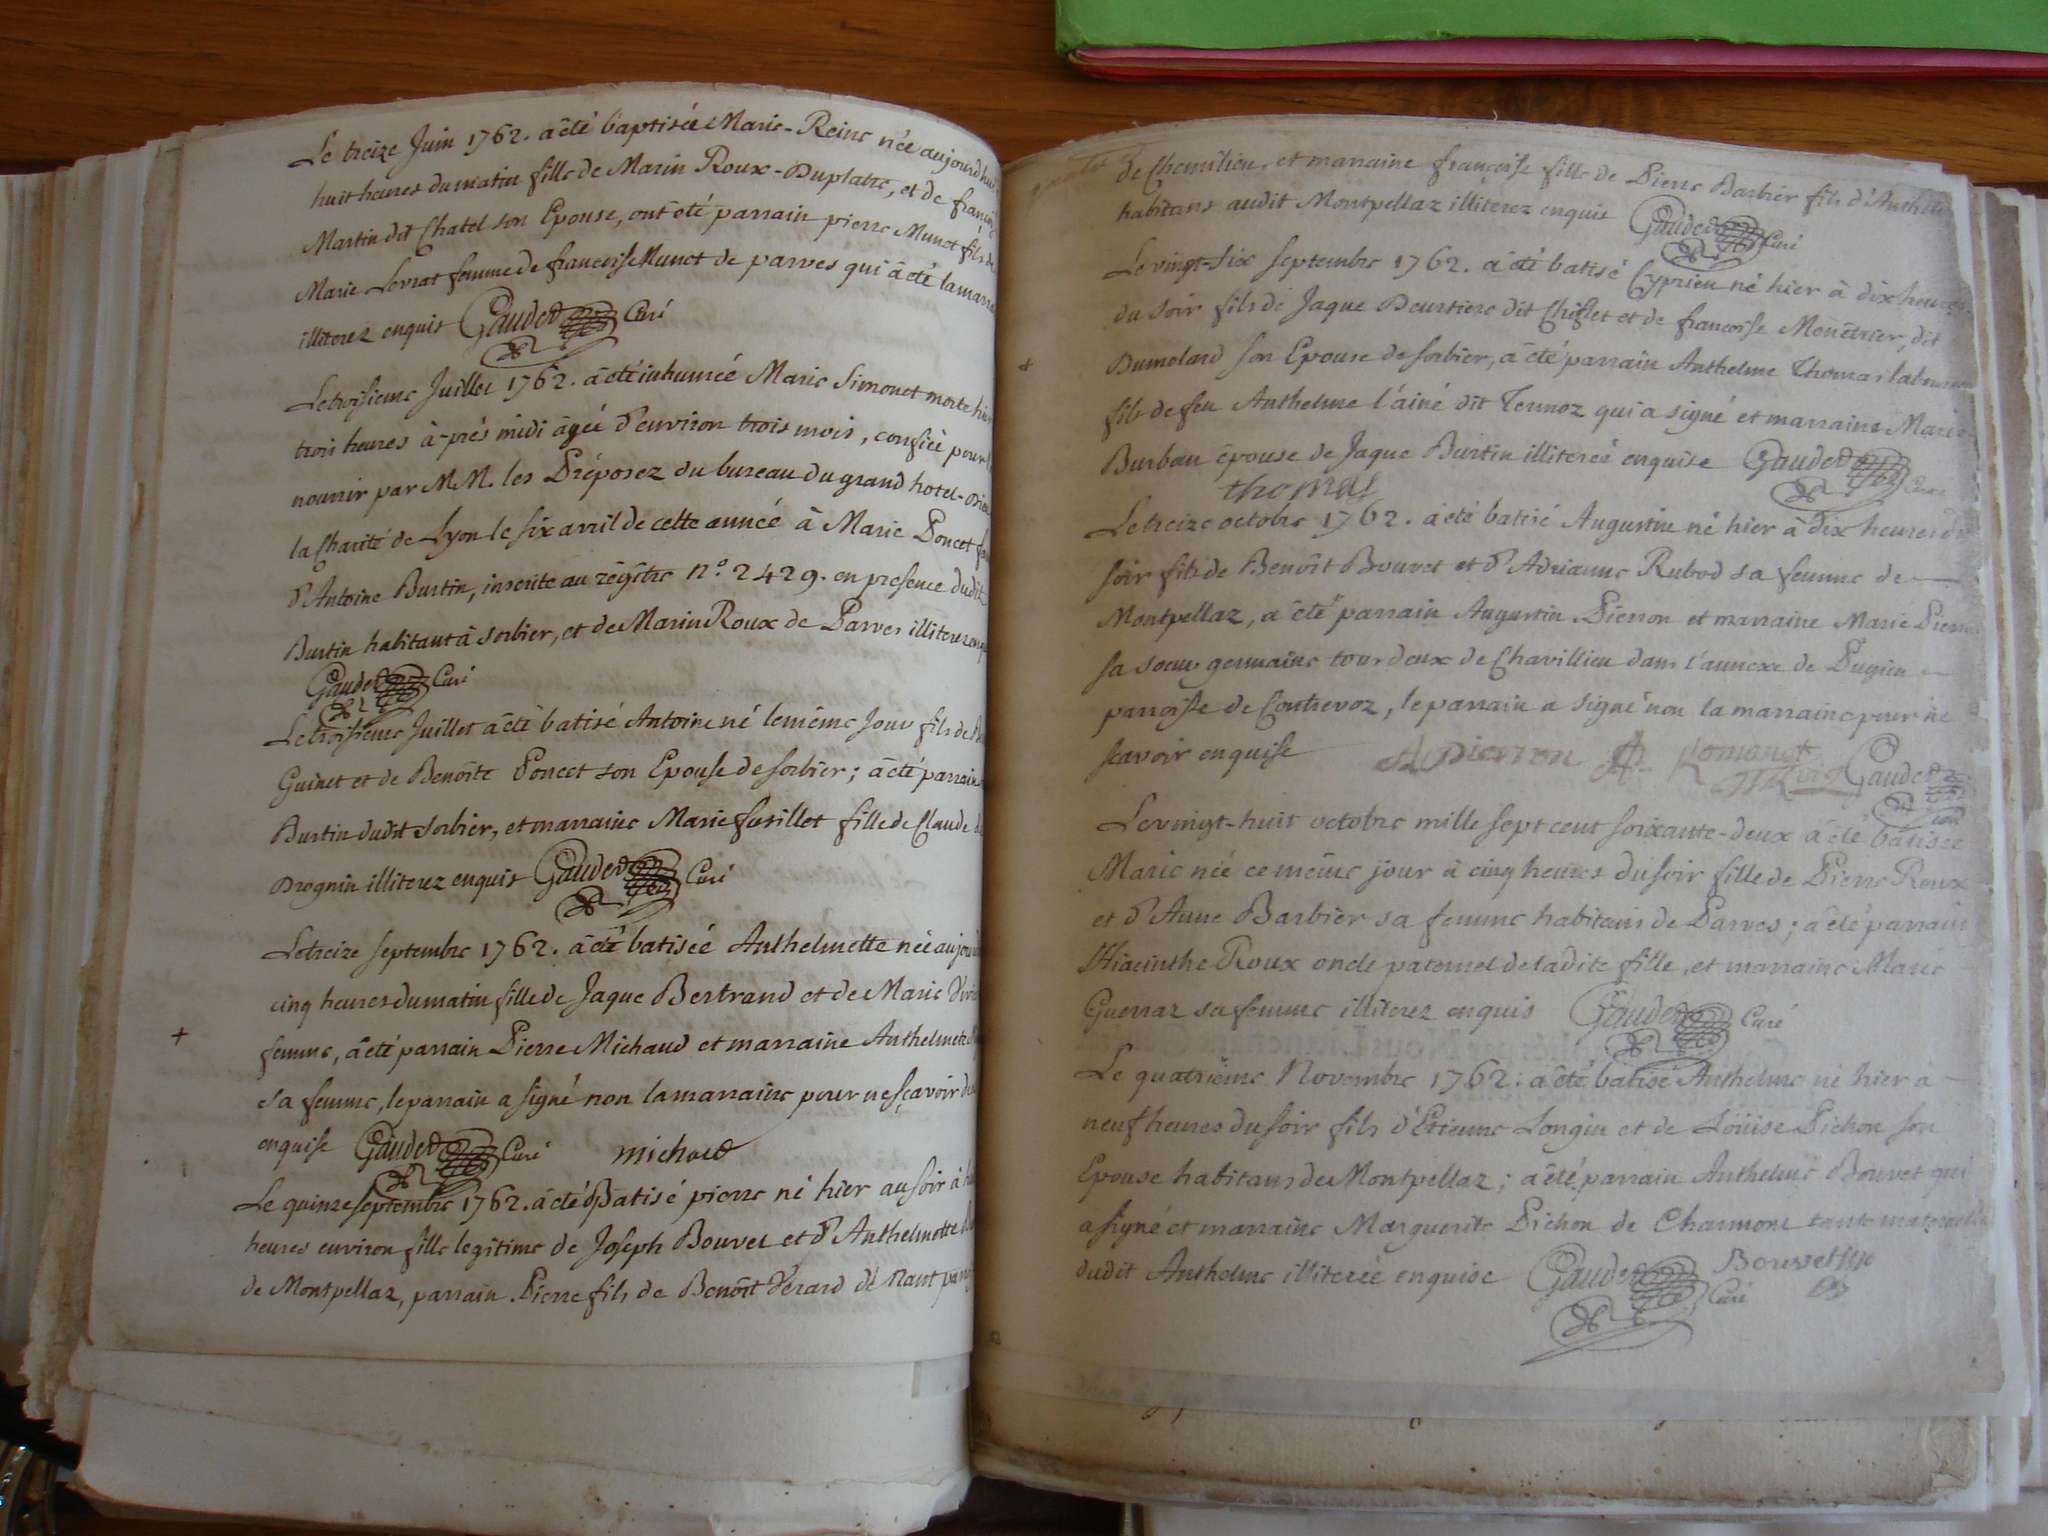 Le treize Juin 1762. a été baptisée Marie-Reine née aujourd'hui
huit heures du matin fille de Marin Roux-Duplatre, et de françoise
Martin dit Chatel son Epouse, ont été parrain pierre Munet fils de
Marie Levrat femme de françoise Munet de parves qui a été la marraine
illiterez enquis Gaudet Curé
Le troisieme Juillet 1762. a été inhumée Marie Simonet morte hier
trois heures à-prés midi âgée d'environ trois mois, confiée pour
nourrir par M.M. les Préposez du bureau du grand hotel-Dieu
la Charité de Lyon le six avril de cette année à Marie Poncet
d'Antoine Burtin, inscrite au régitre n.° 2429. en presence dudit
Burtin habitant à Sorbier, et de Marin Roux de Parves illiterez
Gaudet Curé
Le troisieme Juillet a été batisé Antoine né le même Jour fils de
Guinet et de Benoîte Poncet son Epouse de sorbier; a été parrain
Burtin dudit sorbier, et marraine Marie fusillet fille de Claude
Drognin illiterez enquis Gaudet Curé
Le treize septembre 1762. a été batiseé Anthelmette née
cinq heures du matin fille de Jaque Bertrand et de Marie
+ femme, a été parrain Pierre Michaud et marraine Anthelmette
sa femme, le parrain a signé non la marraine pour ne sçavoir de
enquise Gaudet Curé michaud
Le quinze septembre 1762. a été Batisé pierre né hier au soir à
heures environ fils legitime de Joseph Bouvet et d'Anthelmette
de Montpellaz, parrain Pierre fils de Benoît Vérard de Nant
de Chemilieu, et marraine françoise fille de Pierre Barbier fils d'Anthelme
habitans audit Montpellaz illiterez enquis Gaudet Curé
Le vingt-six septembre 1762. a été batisé Cyprien né hier à dix heures
du soir fils de Jaque Beurtiere dit Chiflet et de francoise Monêtrier, dit
+ Dumolard son Epouse de sorbier, a été parrain Anthelme Thomas laboureur
fils de feu Anthelme l'ainé dit Tennoz qui a signé et marraine Marie
Burban épouse de Jaque Burtin illitereé enquise Gaudet Curé
thomas
Le treize octobre 1762. a été batisé Augustin né hier à dix heures du
soir fils de Benoît Bouvet et d'Adrianne Rubod sa femme de
Montpellaz, a été parrain Augustin Pierron et marraine Marie
sa soeur germaine tous deux de Chavillieu dans l'annexe de Pugieu
parroisse de Contrevoz, le parrain a signé non la marraine pour ne
scavoir enquise A Pierron Romanet Gaudet Curé
Le vingt-huit octobre mille sept cent soixante-deux a été batisée
Marie née ce même jour à cinq heures du soir fille de Pierre Roux
et d'Anne Barbier sa femme habitans de Parves; a été parrain
Hiacinthe Roux oncle paternel de ladite fille, et marraine Marie
Guerraz sa femme illiterez enquis Gaudet Curé
Le quatrième Novembre 1762. a été batisé Anthelme né hier a
neuf heures du soir fils d'Etienne Longin et de Loüise Pichon son
Epouse habitans de Montpellaz; a été parrain Anthelme Bouvet qui
a signé et marraine Marguerite Pichon de Charmont tante maternelle
dudit Anthelme illitereé enquise Gaudet Curé Bouvet